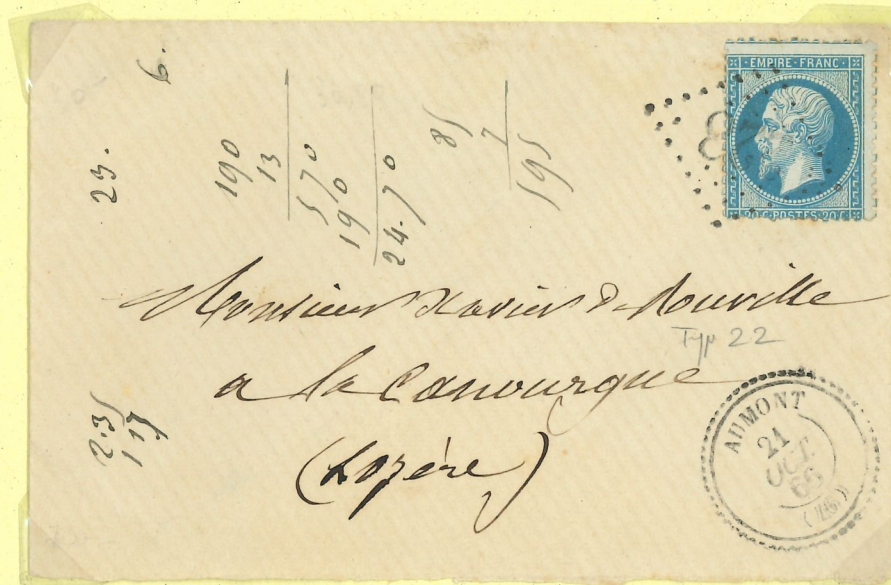 EMPIRE · FRANC ·
20 C · POSTES 20 C
6.
23.
190
13
570
190
24.70
85
7
595
Monsieur Xavier de Rouville
Typ 22
a la Canourgue
(Lozère)
2.35
117
AUMONT
21
OCT.
(46)